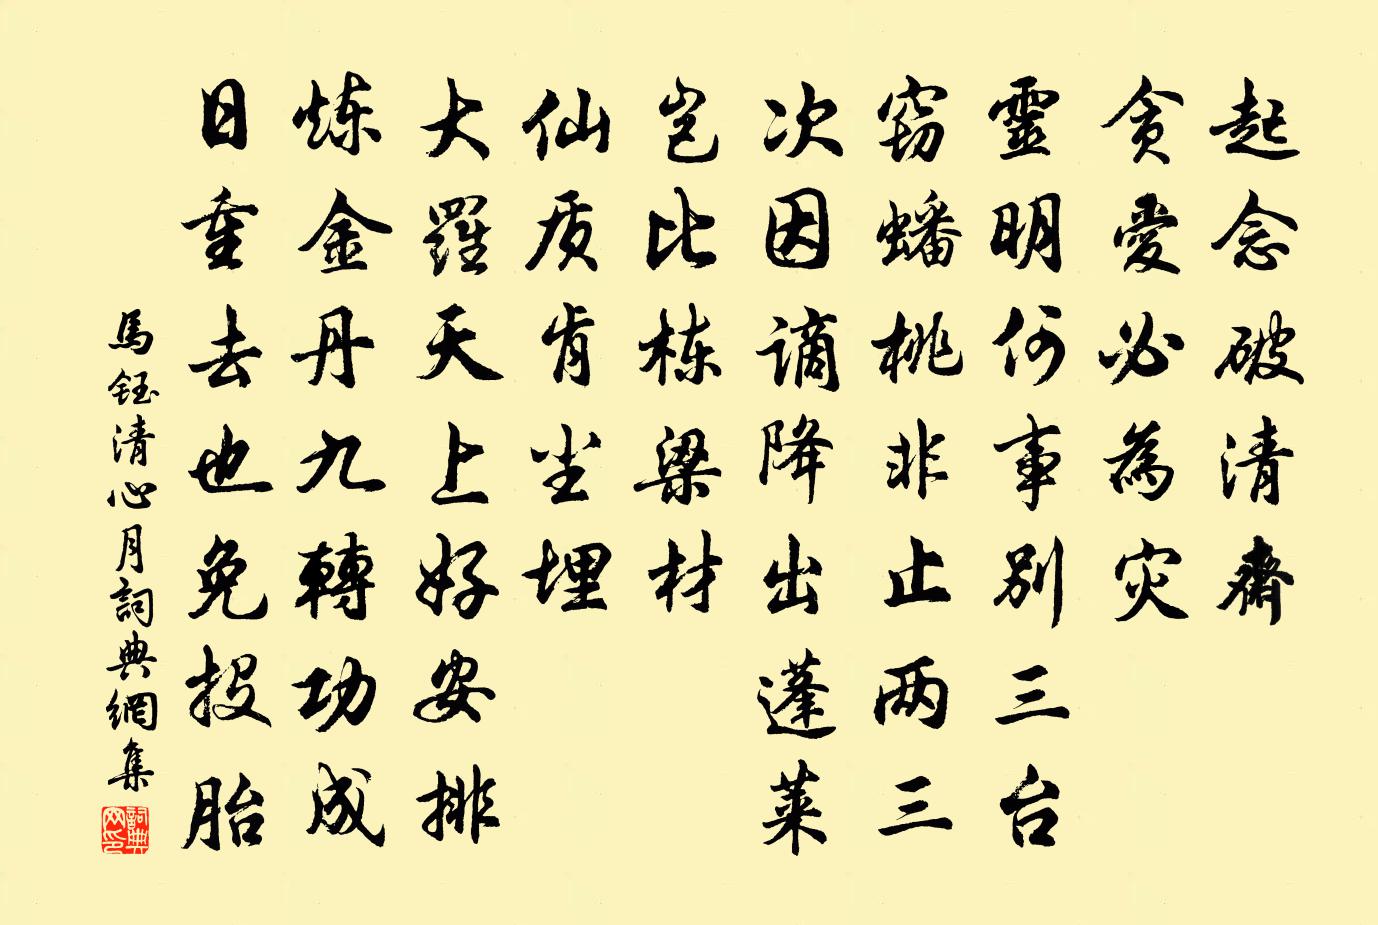 起念破清齋
貪愛必為灾
靈明何事別三台
窃蟠桃非止两三
次因谪降出蓬萊
岂比栋梁材
仙质肯尘埋
大羅天上好安排
炼金丹九轉功成
日重去也免投胎
馬鈺清心月詞典網集
詞典网印